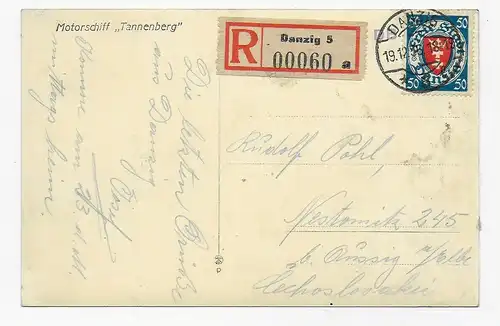 Motorschiff „Tannenberg"
Die letzten Grüße
aus Danzig
Josef.
Komme am 23. d. M.
mittags heim.
R
Danzig 5
00060 a
DANZIG
19.12
50
50
50
Rudolf Pohl,
Nestomitz 245
b. Aussig a/Elbe
Čechoslovakei